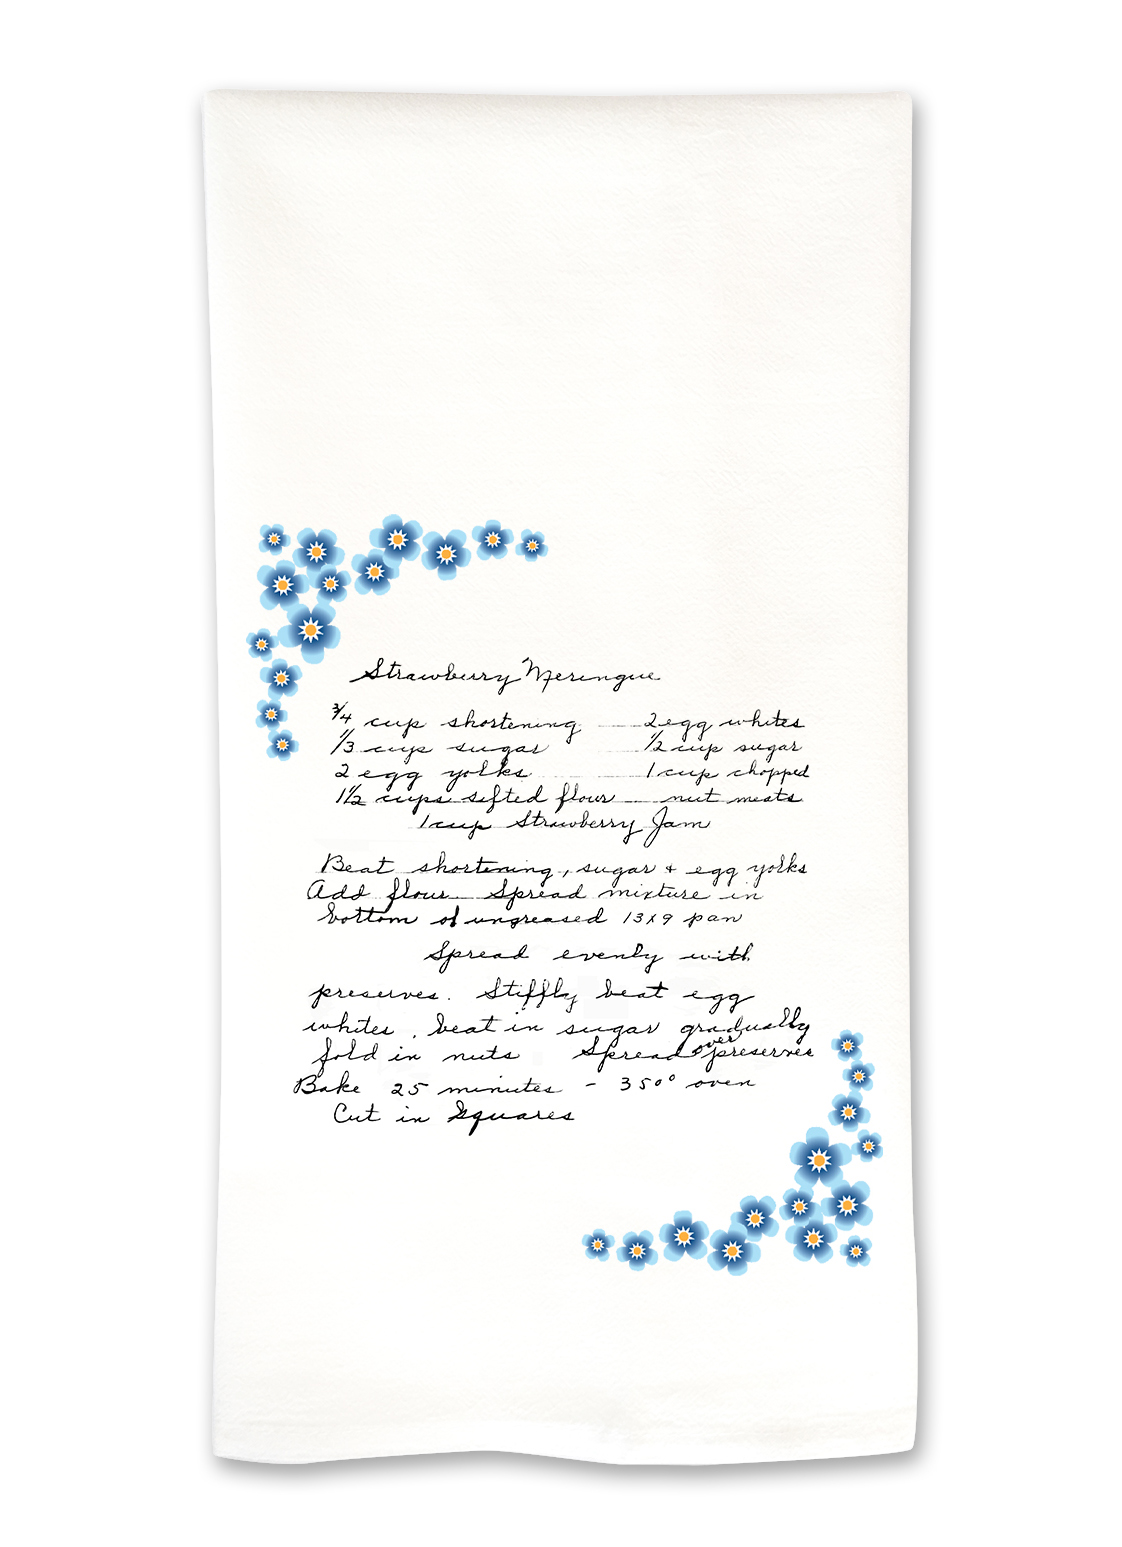 Strawberry Meringue
3/4 cup shortening 2 egg whites
1/3 cup sugar 1/2 cup sugar
2 egg yolks 1 cup chopped
1 1/2 cups sifted flour nut meats
1 cup Strawberry Jam
Beat shortening, sugar + egg yolks
Add flour Spread mixture in
bottom of ungreased 13x9 pan
Spread evenly with
preserves. Stiffly beat egg
whites, beat in sugar gradually
fold in nuts Spread over preserves
Bake 25 minutes - 350° oven
Cut in Squares